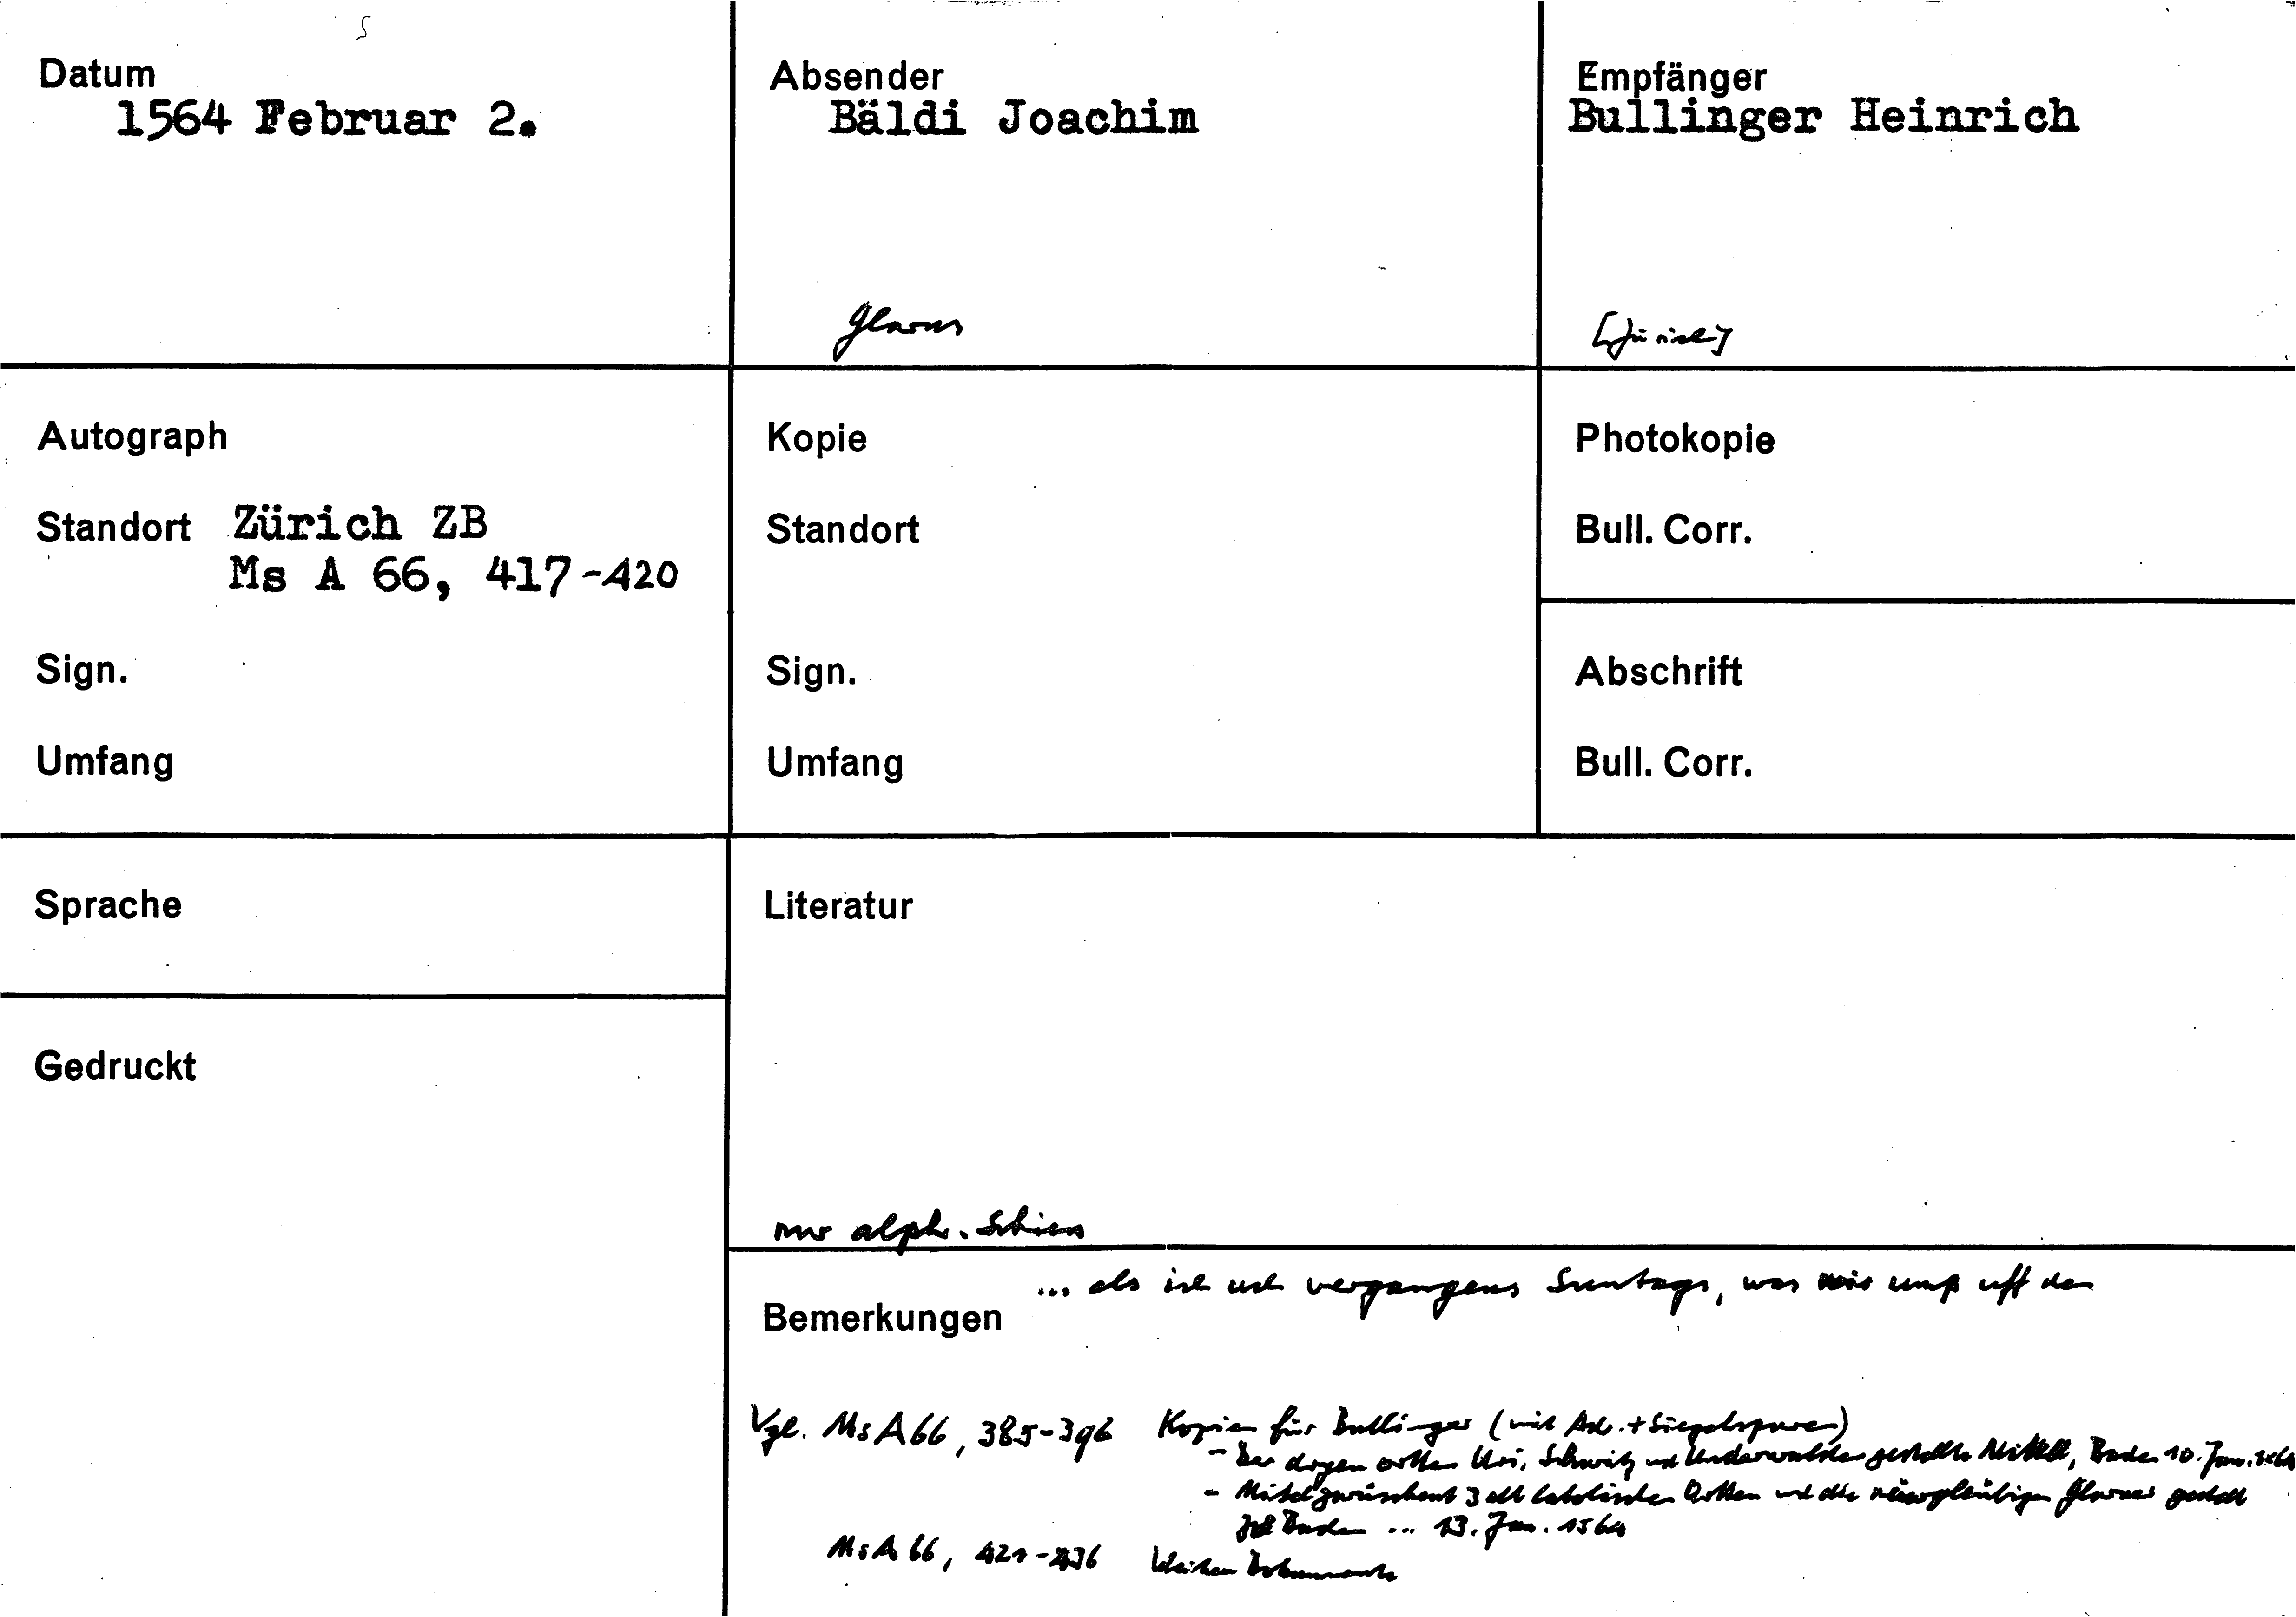 Datum
1564 Februar 2.
Absender
Bäldi Joachim
Glarus
Empfänger
Bullinger Heinrich
[Zürich]
Autograph
Standort Zürich ZB
Ms A 66, 417-420
Sign.
Umfang
Kopie
Standort
Sign.
Umfang
Photokopie
Bull. Corr.
Abschrift
Bull. Corr.
Sprache
Gedruckt
Literatur
nur alph. Schiess
Bemerkungen
... als ich üch vergangens Suntags, was wir umb uff den
Vgl. Ms A 66, 385-396 Kopien für Bullinger (mit Adr. + Siegelspuren)
- Der dryen ortten Uri, Schwitz und Underwalden gestellte Mittell, Baden 10. Jan. 1564
- Mitel zwüschent 3 alt catolischen Ortten und die nüwgleübigen Glarner gestelt
Baden ... 13. Jan. 1564
Ms A 66, 421-436 Weitere Dokumente